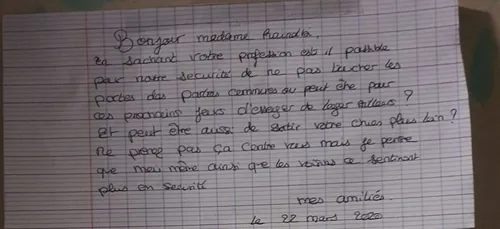 Bonjour madame
En sachant votre profession est il possible
pour notre sécurité de ne pas toucher les
portes des parties communes ou peut être pour
ces prochains jours d'essayer de loger ailleurs ?
Et peut être aussi de sortir votre chien plus loin ?
Ne prenez pas ça contre vous mais je pense
que moi même ainsi que les voisins se sentiront
plus en sécurité
mes amitiés.
le 22 mars 2020